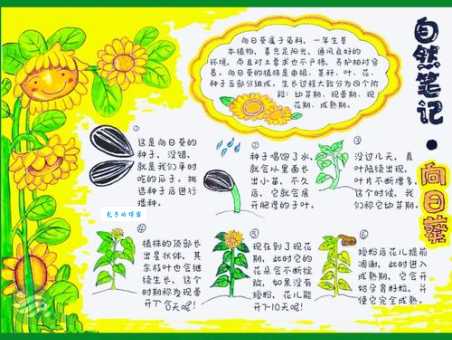 自然笔记·向日葵
向日葵属于菊科,一年生草
本植物,喜充足阳光、通风良好的
环境,而且对土要求也不严格,养护相对容
易。向日葵的植株是由根、茎秆、叶、花、
种子五部分组成,生长过程大致分为四个阶
段:幼苗期、现蕾期、现
花期、成熟期。
①
这是向日葵的
种子,没错,
就是我们平时
吃的瓜子。挑
选种子后进行
播种。
②
种子喝饱了水,
就会从里面长
出小苗,不久
后,它就会展
开肥厚的子叶。
③
没过几天,真
叶陆续出现,
叶片不断增多,
这个时候,我
们称它幼苗期。
④
植株的顶部长
出星状体,其
东枝叶也会继
续生长,这个
时期称为现蕾
开了
天呢!
⑤
现在到了现花
期,此时它的
花朵会不断绽
放,如果没有
授粉,花儿能
开了10天呢!
⑥
授粉后花儿提前
凋谢,此时进入
成熟期,它会开
始孕育籽粒,并
使它完全成熟。